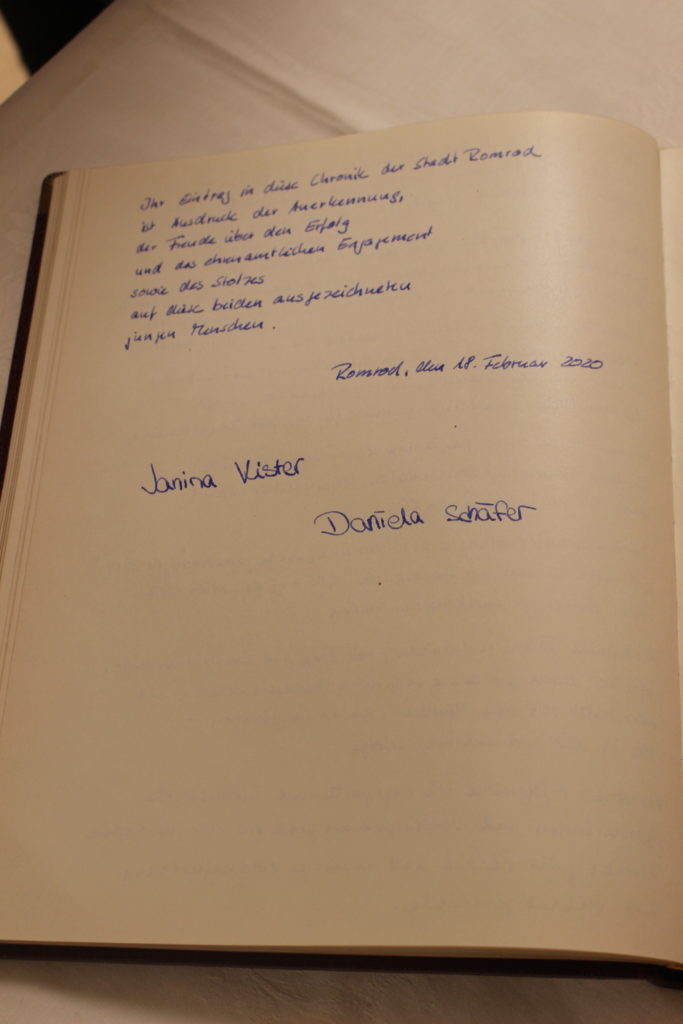 Ihr Eintrag in diese Chronik der Stadt Romrod
ist Ausdruck der Anerkennung,
der Freude über den Erfolg
und das ehrenamtlichen Engagement
sowie des Stolzes
auf diese beiden ausgezeichneten
jungen Menschen.
Romrod, den 18. Februar 2020
Janina Kister
Daniela Schäfer